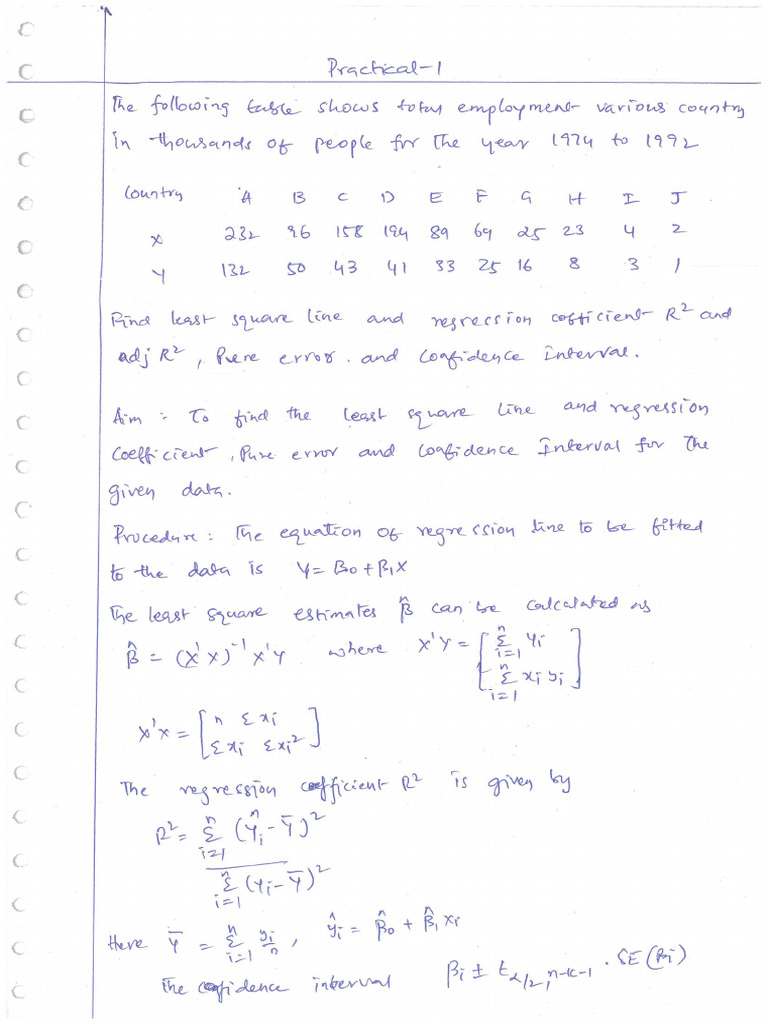 Practical-1
The following table shows total employment various country
in thousands of people for the year 1974 to 1992
Country A B C D E F G H I J
X 232 96 158 194 89 69 25 23 4 2
Y 132 50 43 41 33 25 16 8 3 1
Find least square line and regression cofficient R² and
adj R², Pure error. and Confidence Interval.
Aim : To find the least square line and regression
Coefficient, Pure error and Confidence Interval for the
given data.
Procedure : The equation of regression line to be fitted
to the data is Y = β0 + β1X
The least square estimates β̂ can be calculated as
β̂ = (X'X)⁻¹ X'Y where X'Y = [ Σᵢ₌₁ⁿ yi
Σᵢ₌₁ⁿ xi yi ]
X'X = [ n Σxi
Σxi Σxi² ]
The regression coefficient R² is given by
R² = Σᵢ₌₁ⁿ (Ŷi - Ȳ)²
Σᵢ₌₁ⁿ (Yi - Ȳ)²
Here Ȳ = Σᵢ₌₁ⁿ yi/n , ŷi = β̂0 + β̂1 xi
The confidence interval βi ± tα/2, n-k-1 . SE(βi)